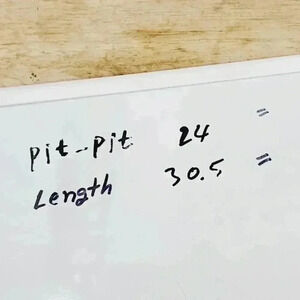 pit--pit 24 =
Length 30.5 =